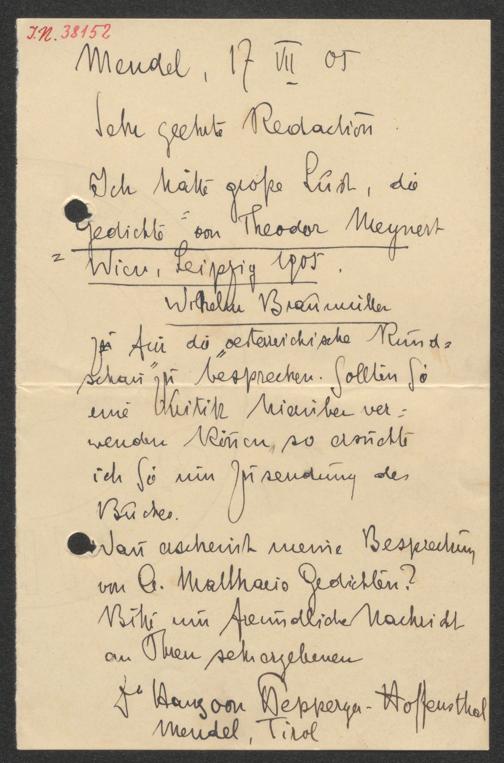 I.N. 38152
Mendel, 17 VII 05
Sehr geehrte Redaction
Ich hätte große Lust, die
Gedichte = von Theodor Meynert
= Wien, Leipzig 1905.
Wilhelm Braumüller
für die „oesterreichische Rund=
schau" zu besprechen. Sollten Sie
eine Kritik hierüber ver=
wenden können, so ersuchte
ich Sie um Zusendung des
Buches.
Wann erscheint meine Besprechung
von Gedichten?
Bitte um freundliche Nachricht
an Ihren sehr ergebenen
Dr Hans von Hepperger-Hoffensthal
Mendel, Tirol